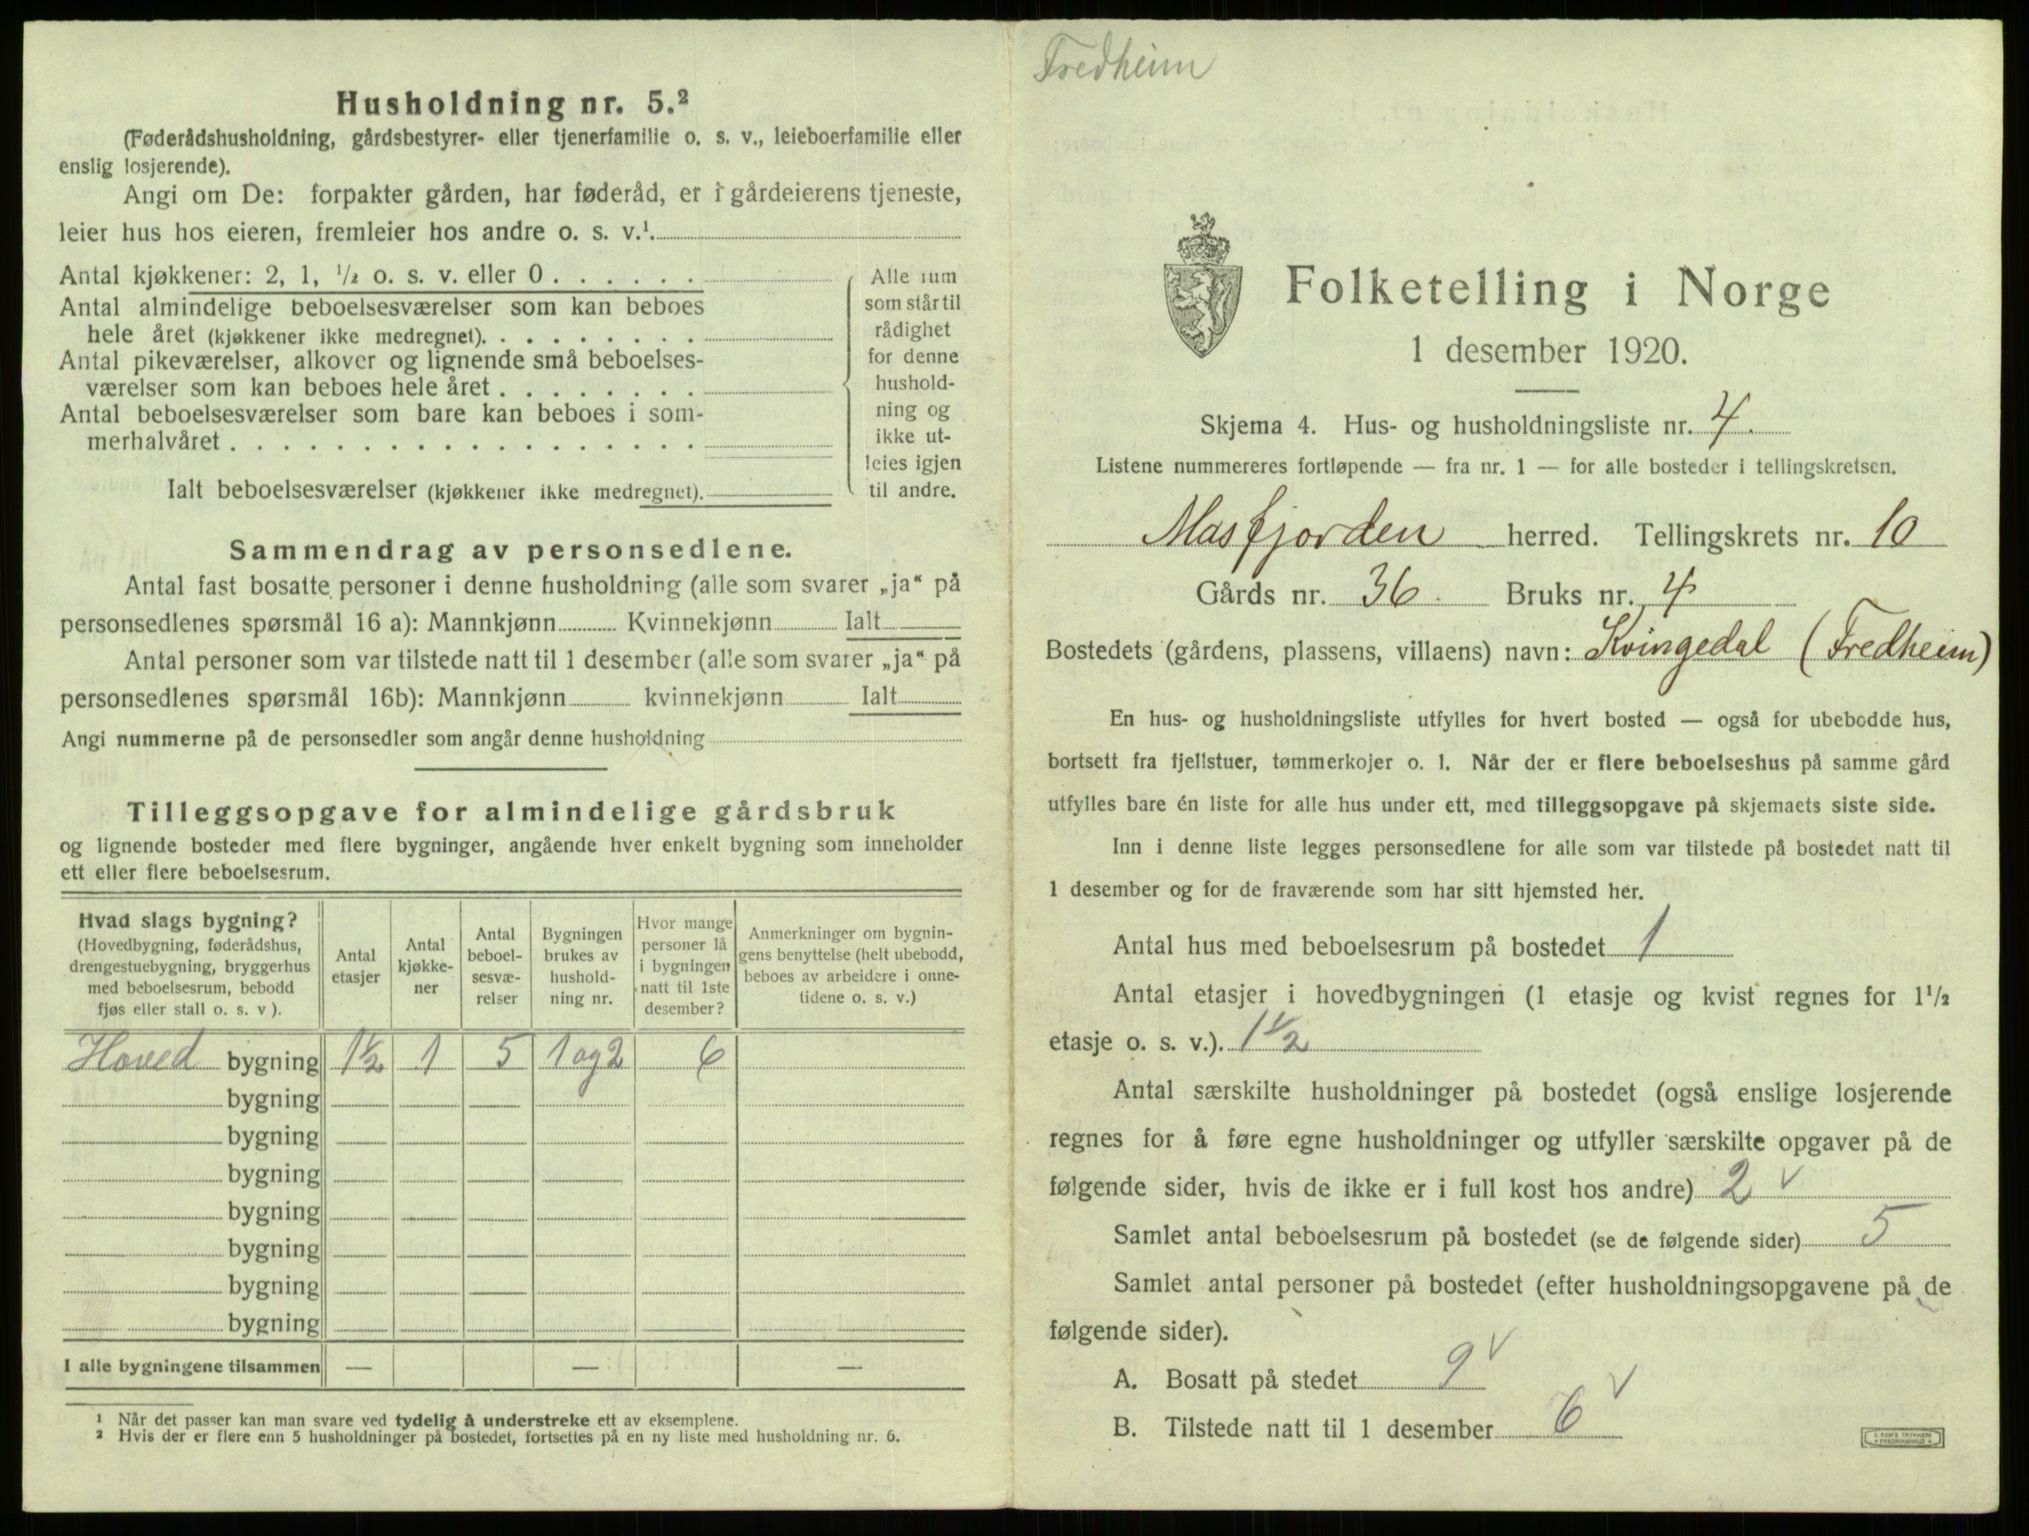 Husholdning nr. 5.²
(Føderådshusholdning, gårdsbestyrer- eller tjenerfamilie o. s. v., leieboerfamilie eller
enslig losjerende).
Angi om De: forpakter gården, har føderåd, er i gårdeierens tjeneste,
leier hus hos eieren, fremleier hos andre o. s. v.¹
Antal kjøkkener: 2, 1, ½ o. s. v. eller 0 . . . . . .
Antal almindelige beboelsesværelser som kan beboes
hele året (kjøkkener ikke medregnet). . . . . . . . .
Antal pikeværelser, alkover og lignende små beboelses-
værelser som kan beboes hele året . . . . . . . .
Antal beboelsesværelser som bare kan beboes i som-
merhalvåret . . . . . . . . . . . . . . . . . .
Ialt beboelsesværelser (kjøkkener ikke medregnet).
Alle rum
som står til
rådighet
for denne
hushold-
ning og
ikke ut-
leies igjen
til andre.
Sammendrag av personsedlene.
Antal fast bosatte personer i denne husholdning (alle som svarer „ja“ på
personsedlenes spørsmål 16 a): Mannkjønn Kvinnekjønn Ialt
Antal personer som var tilstede natt til 1 desember (alle som svarer „ja“ på
personsedlenes spørsmål 16b): Mannkjønn kvinnekjønn Ialt
Angi nummerne på de personsedler som angår denne husholdning
Tilleggsopgave for almindelige gårdsbruk
og lignende bosteder med flere bygninger, angående hver enkelt bygning som inneholder
ett eller flere beboelsesrum.
Hvad slags bygning?
(Hovedbygning, føderådshus,
drengestuebygning, bryggerhus
med beboelsesrum, bebodd
fjøs eller stall o. s. v ).
Antal
etasjer
Antal
kjøkke-
ner
Antal
beboel-
sesvæ-
relser
Bygningen
brukes av
hushold-
ning nr.
Hvor mange
personer lå
i bygningen
natt til 1ste
desember?
Anmerkninger om bygnin-
gens benyttelse (helt ubebodd,
beboes av arbeidere i onne-
tidene o. s. v.)
Hoved bygning 1½ 1 5 1 og 2 6
bygning
bygning
bygning
bygning
bygning
bygning
bygning
I alle bygningene tilsammen — — —
¹ Når det passer kan man svare ved tydelig å understreke ett av eksemplene.
² Hvis der er flere enn 5 husholdninger på bostedet, fortsettes på en ny liste med husholdning nr. 6.
Fredheim
Folketelling i Norge
1 desember 1920.
Skjema 4. Hus- og husholdningsliste nr. 4.
Listene nummereres fortløpende — fra nr. 1 — for alle bosteder i tellingskretsen.
Masfjorden herred. Tellingskrets nr. 10
Gårds nr. 36. Bruks nr. 4
Bostedets (gårdens, plassens, villaens) navn: Kvingedal (Fredheim)
En hus- og husholdningsliste utfylles for hvert bosted — også for ubebodde hus,
bortsett fra fjellstuer, tømmerkojer o. l. Når der er flere beboelseshus på samme gård
utfylles bare én liste for alle hus under ett, med tilleggsopgave på skjemaets siste side.
Inn i denne liste legges personsedlene for alle som var tilstede på bostedet natt til
1 desember og for de fraværende som har sitt hjemsted her.
Antal hus med beboelsesrum på bostedet 1
Antal etasjer i hovedbygningen (1 etasje og kvist regnes for 1½
etasje o. s. v.). 1½
Antal særskilte husholdninger på bostedet (også enslige losjerende
regnes for å føre egne husholdninger og utfyller særskilte opgaver på de
følgende sider, hvis de ikke er i full kost hos andre) 2 ✓
Samlet antal beboelsesrum på bostedet (se de følgende sider) 5
Samlet antal personer på bostedet (efter husholdningsopgavene på de
følgende sider).
A. Bosatt på stedet 9 ✓
B. Tilstede natt til 1 desember 6 ✓